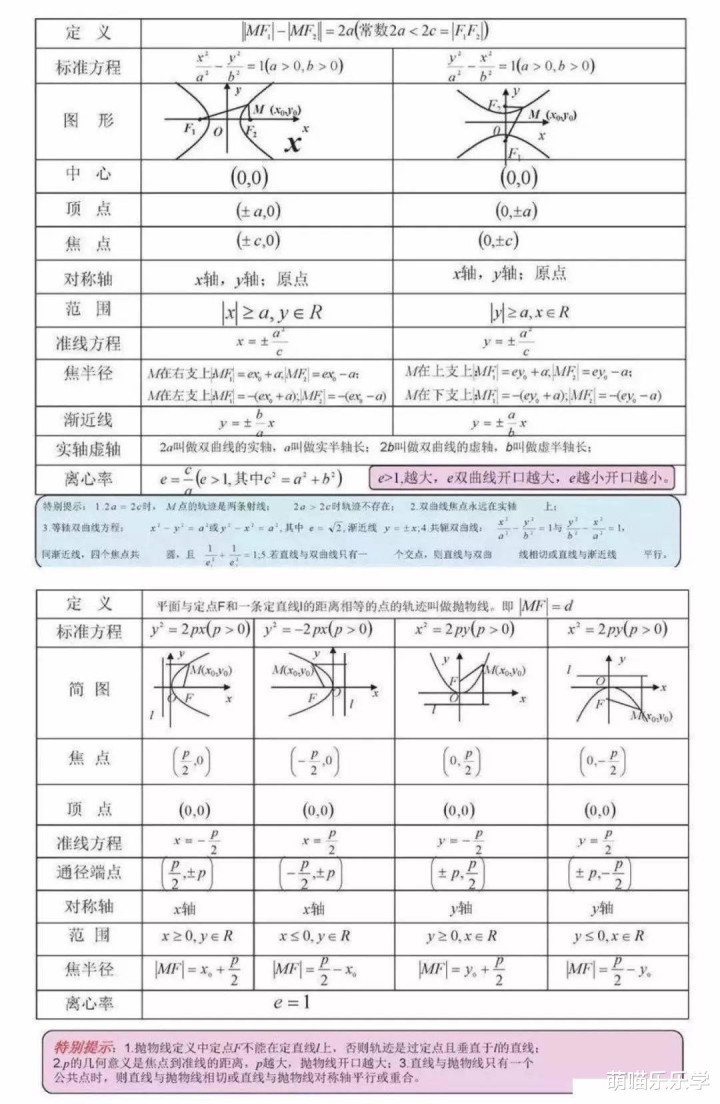 定 义 ||MF₁|−|MF₂||=2a(常数2a<2c=|F₁F₂|)
标准方程 x²/a²−y²/b²=1(a>0,b>0) y²/a²−x²/b²=1(a>0,b>0)
图 形 y M (x₀,y₀) F₁ O F₂ x x y F₂ M (x₀,y₀) 0 x F₁
中 心 (0,0) (0,0)
顶 点 (±a,0) (0,±a)
焦 点 (±c,0) (0,±c)
对称轴 x轴，y轴；原点 x轴，y轴；原点
范 围 |x|≥a,y∈R |y|≥a,x∈R
准线方程 x=±a²/c y=±a²/c
焦半径 M在右支上|MF₁|=ex₀+a;|MF₂|=ex₀−a; M在上支上|MF₁|=ey₀+a;|MF₂|=ey₀−a;
M在左支上|MF₁|=−(ex₀+a);|MF₂|=−(ex₀−a) M在下支上|MF₁|=−(ey₀+a);|MF₂|=−(ey₀−a)
渐近线 y=±b/a x y=±a/b x
实轴虚轴 2a叫做双曲线的实轴，a叫做实半轴长；2b叫做双曲线的虚轴，b叫做虚半轴长；
离心率 e=c/a(e>1,其中c²=a²+b²) e>1,越大，e双曲线开口越大，e越小开口越小。
特别提示：1.2a=2c时，M点的轨迹是两条射线； 2a>2c时轨迹不存在； 2.双曲线焦点永远在实轴 上；
3.等轴双曲线方程： x²−y²=a²或y²−x²=a²,其中 e=√2,渐近线 y=±x;4.共轭双曲线： x²/a²−y²/b²=1与y²/b²−x²/a²=1,
同渐近线，四个焦点共 圆，且 1/e₁²+1/e₂²=1;5.若直线与双曲线只有一 个交点，则直线与双曲 线相切或直线与渐近线 平行。
定 义 平面与定点F和一条定直线l的距离相等的点的轨迹叫做抛物线。即 |MF|=d
标准方程 y²=2px(p>0) y²=−2px(p>0) x²=2py(p>0) x²=2py(p>0)
简 图 y M(x₀,y₀) O F x l M(x₀,y₀) y F O x l y F M(x₀,y₀) O l x l y O x F M(x₀,y₀)
焦 点 (p/2,0) (−p/2,0) (0,p/2) (0,−p/2)
顶 点 (0,0) (0,0) (0,0) (0,0)
准线方程 x=−p/2 x=p/2 y=−p/2 y=p/2
通径端点 (p/2,±p) (−p/2,±p) (±p,p/2) (±p,−p/2)
对称轴 x轴 x轴 y轴 y轴
范 围 x≥0,y∈R x≤0,y∈R y≥0,x∈R y≤0,x∈R
焦半径 |MF|=x₀+p/2 |MF|=p/2−x₀ |MF|=y₀+p/2 |MF|=p/2−y₀
离心率 e=1
特别提示：1.抛物线定义中定点F不能在定直线l上，否则轨迹是过定点且垂直于l的直线；
2.p的几何意义是焦点到准线的距离，p越大，抛物线开口越大；3.直线与抛物线只有一个
公共点时，则直线与抛物线相切或直线与抛物线对称轴平行或重合。
萌喵乐乐学